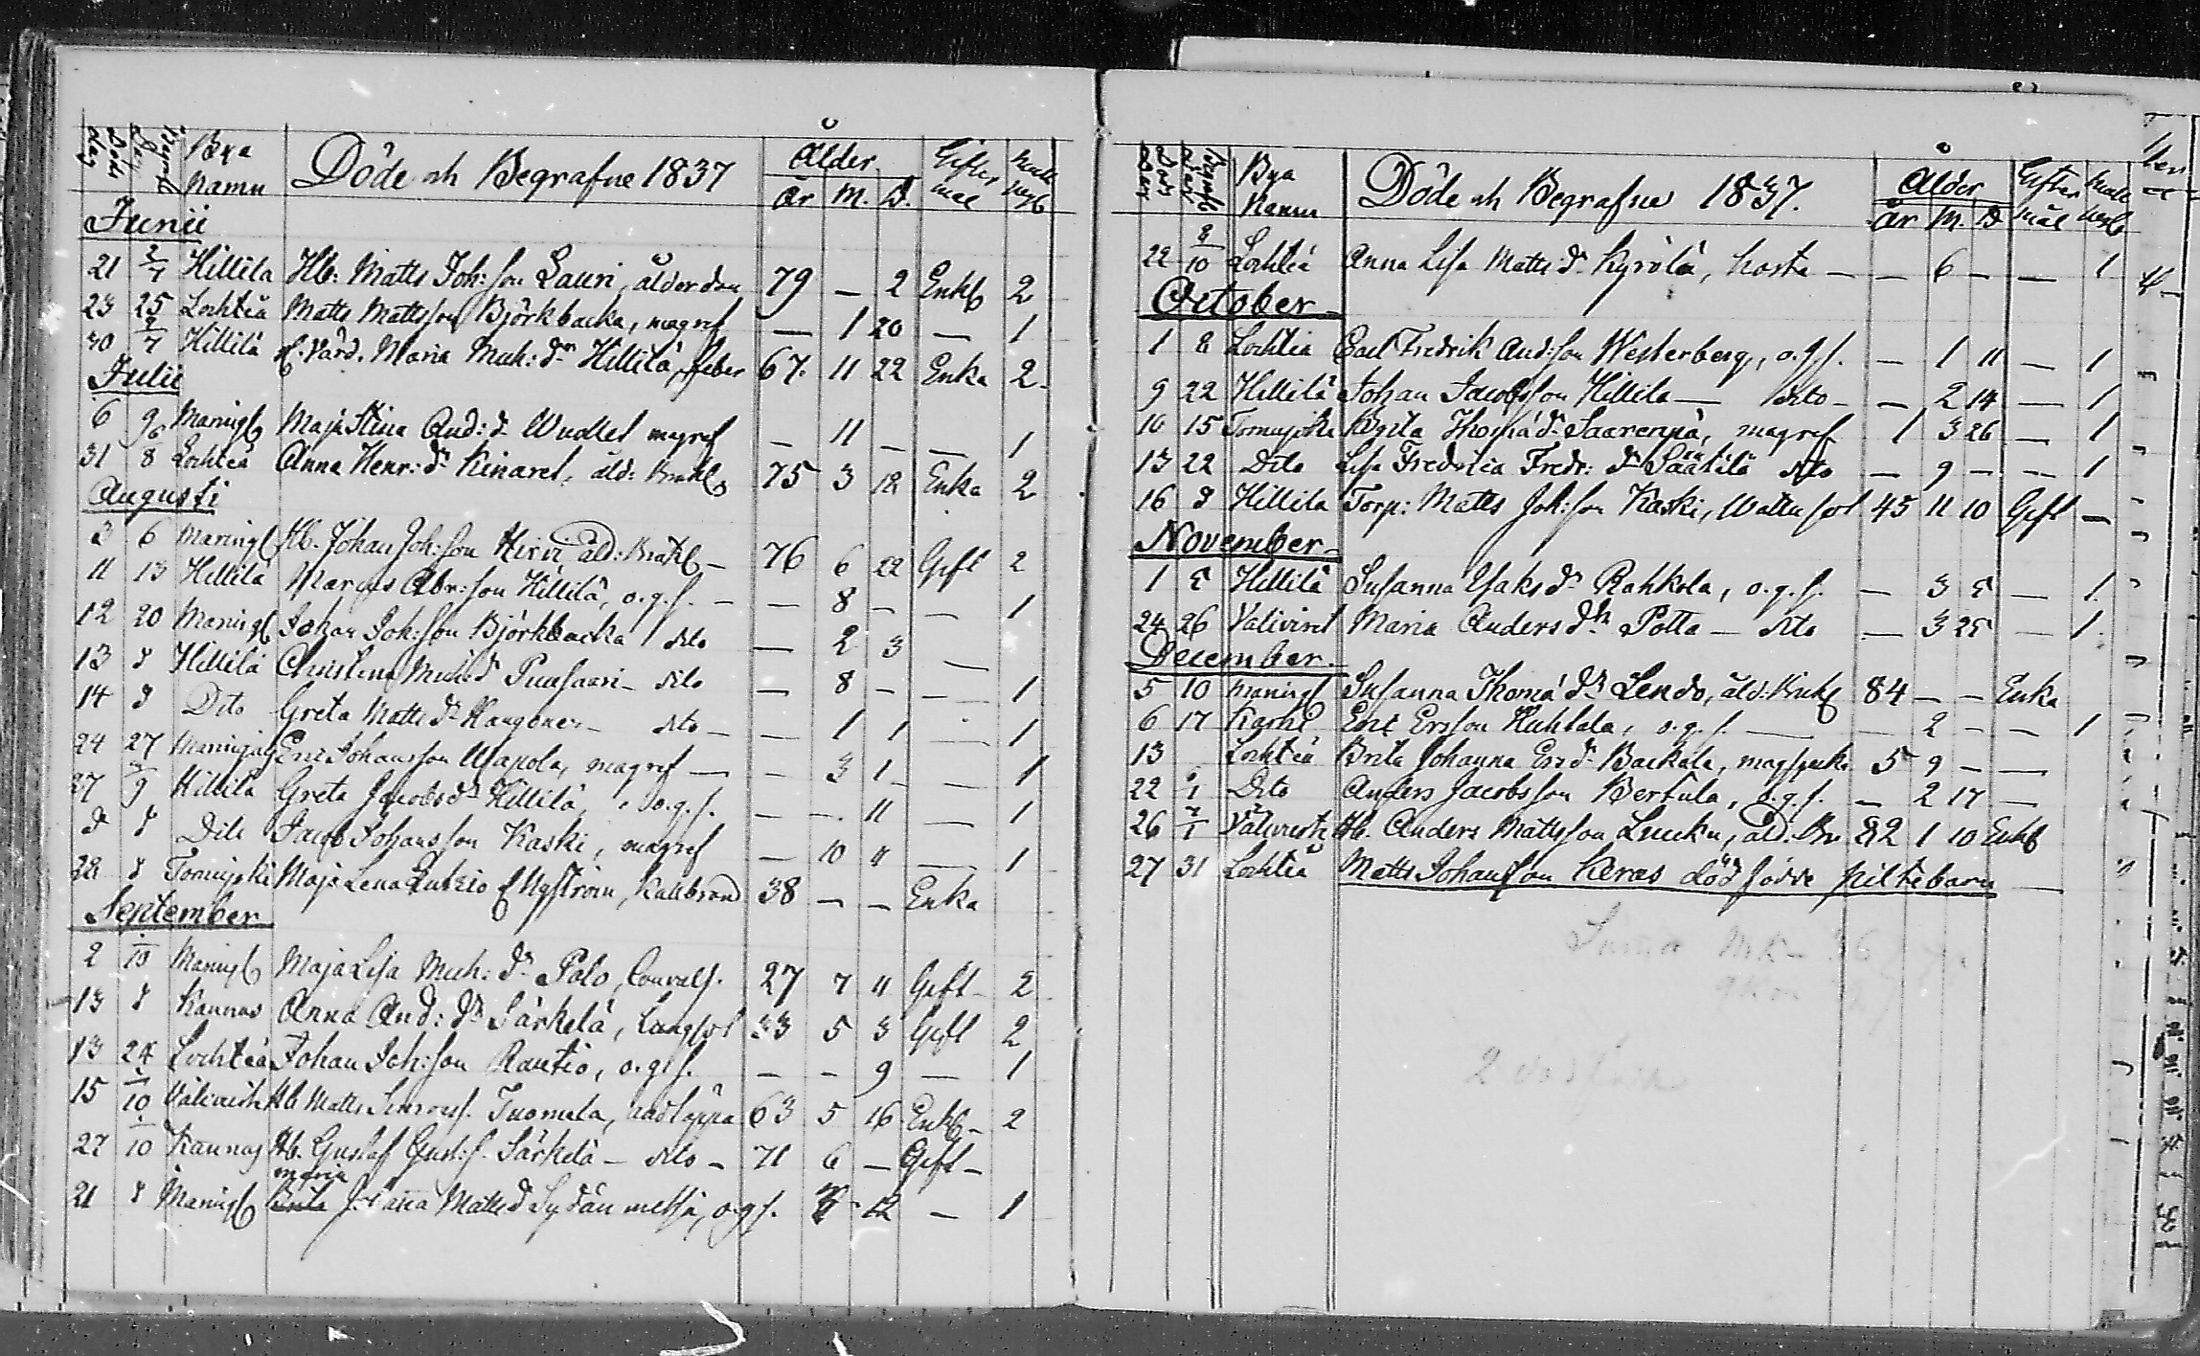 Döde Dag Begrafn. Dag Bya Namn Döde och Begrafne 1837 Ålder År M. D. Giftermål
Junii
21 2/7 Hillilä Hb: Matts Joh:son Lauri, ålderdom 79 — 2 Enkl 2
23 25 Lochteå Matts Mattsson Björkbacka, magref — 1 20 — 1
30 2/7 Hillilä Maria Mich: dr Hillilä, feber 67 11 22 Enka 2
Julii
6 9 Maningb Maja Stina And: dr magref — 11 — — 1
31 6/8 Lochteå Anna Henr: dr Kinaret, åld: Bräkl 75 3 18 Enka 2
Augusti
3 6 Maningb Hb. Johan Joh:son Hirvi åld: Bräkl — 76 6 22 Gift 2
11 13 Hillilä Marcus Abr:son Hillilä, o.g.s. — — 8 — — 1
12 20 Maningb Johan Joh:son Björkbacka dito — 2 3 —
13 d Hillilä Christina Mich d Puusaari — dito — 8 — — 1
14 d Dito Greta Matts dr Kangonen — dito — — 1 1 — 1
24 27 Maningb Eric Johansson Uapola, magref — — 3 1 — 1
27 3/9 Hillilä Greta Jacobs dr Hillilä, o.g.s. — — 11 — 1
d d Dito Jacob Johansson Kaski, magref — 10 11 — 1
28 d Tomujoki Maja Lena Lutzio f Nyström, Kallbrand 38 — — Enka
September
2 10 Maningb Maja Lisa Mich: dr Polo, Convuls. 27 7 11 Gift — 2
13 d Kannus Anna And: dr Särkelä, Lungsot 33 5 3 Gift 2
13 24 Lochteå Johan Joh:son Rautio, o.g.s. — — 9 — 1
15 1/10 Välivirte Hb Matts Simonss. Tuomela, 63 5 16 Enkl — 2
27 1/10 Kannus Hb. Gustaf Gust:s. Särkelä — dito — 71 6 — Gift —
Maria
21 d Maningb Brita Johanna Matts d Sydänmetsä, o.g.s. 12 — 1
Bya Namn Döde och Begrafne 1837. Ålder År M. D Giftermål
22 8/10 Lochteå Anna Lisa Matts dr Kyrölä, hosta — — 6 — — 1
October
1 8 Lochteå Carl Fredrik And:son Westerberg, o.g.s. — 1 11 — 1
9 22 Hillilä Johan Jacobsson Hillilä — dito — — 2 14 — 1
10 15 Tomujoki Brita Thomä dr Saarenpä, magref 1 3 26 — 1
13 22 Dito Lisa Fredrica Fredr: dr Säätilä dito — 9 — — 1
16 d Hillilä Torp: Matts Joh:son Kaski, Wattusot 45 11 10 Gift —
November
1 5 Hillilä Susanna Isaks dr Rahkola, o.g.s. — 3 5 — 1
24 26 Välivirt Maria Anders dr Potta — dito — 3 25 — 1
December
5 10 Maningb Susanna Thomä dr Lendo, åld: Bräkl 84 — — Enka
6 17 Karhi Eric Ersson Huhtala, o.g.s. — — 2 — — 1
13 Lochteå Brita Johanna Ers dr Backala, 5 9 — —
22 1/1 Dito Anders Jacobsson Bertula, o.g.s. — 2 17 —
26 7/1 Välivirte Hb. Anders Mattsson Luuku, åld. Br 82 1 10 Enkl
27 31 Lochteå Matts Johansson Keras dödfödde piltebarn —
Suma Mk — 36
2 dödfödde